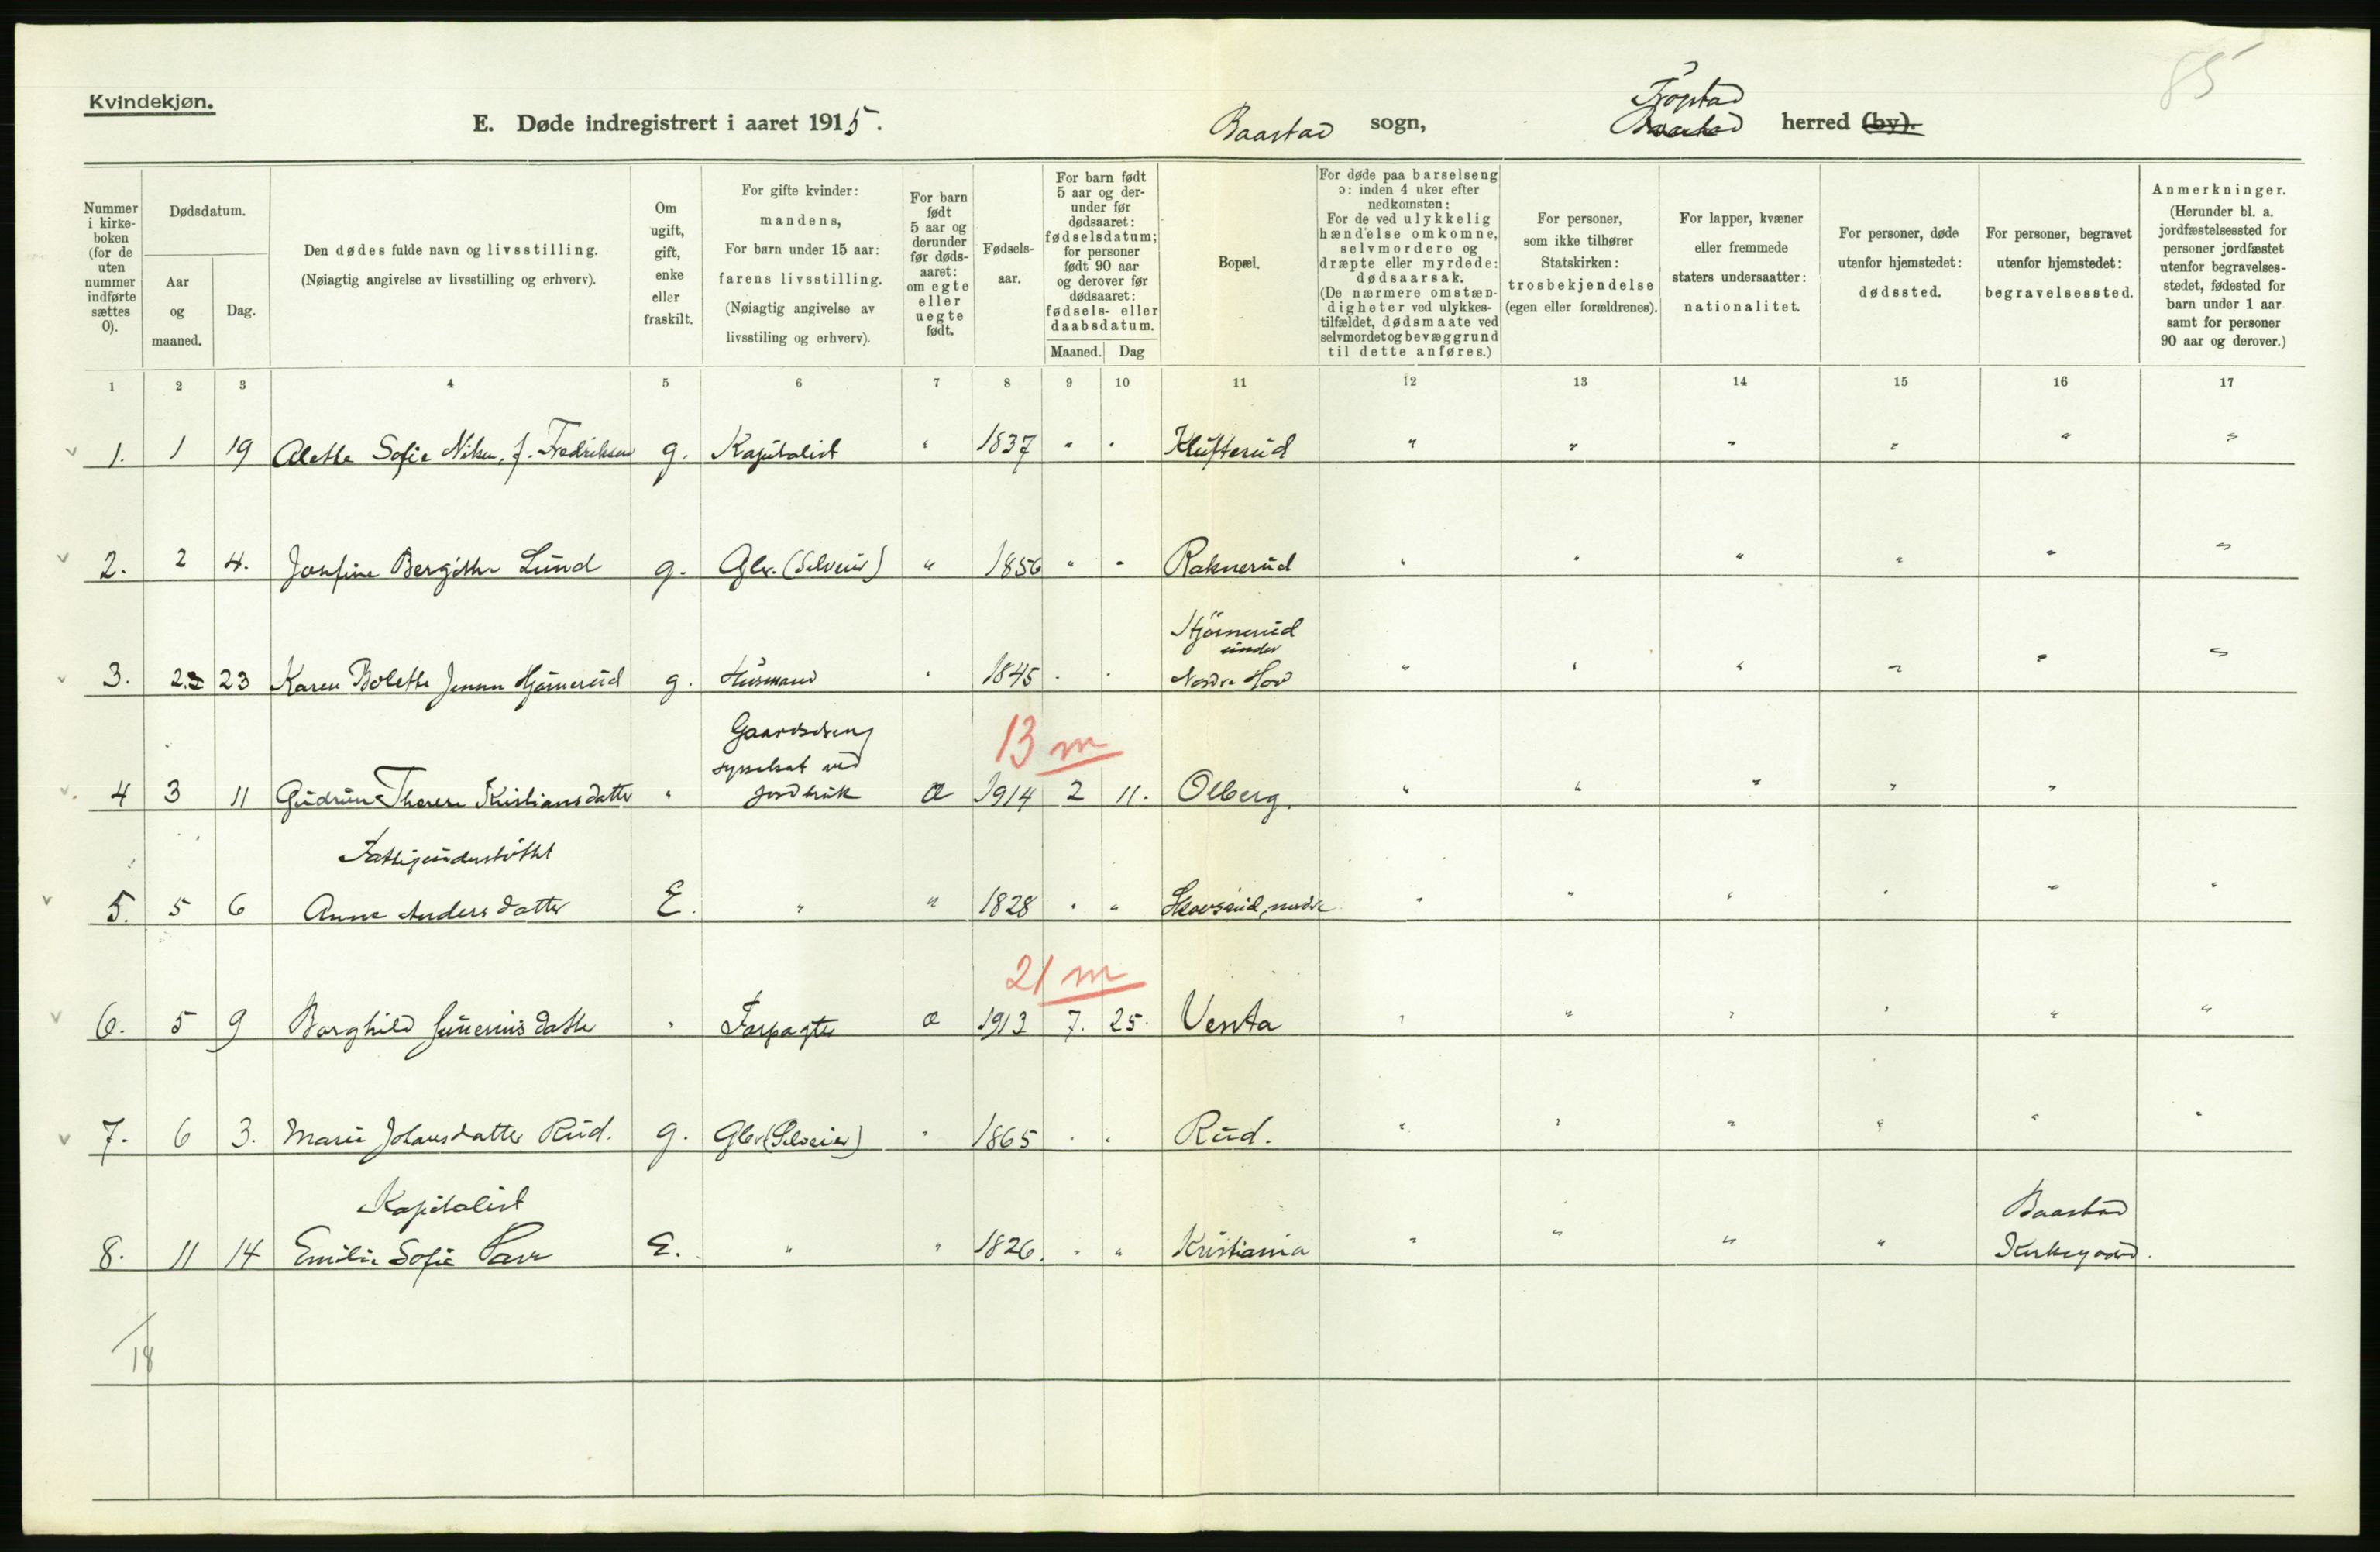 85
Kvindekjøn.
E. Døde indregistrert i aaret 1915.
Baastad sogn, Trøgstad Baastad herred (by).
Nummer i kirke-boken (for de uten nummer indførte sættes 0).
Dødsdatum.
Aar og maaned.
Dag.
Den dødes fulde navn og livsstilling.
(Nøiagtig angivelse av livsstilling og erhverv).
Om ugift, gift, enke eller fraskilt.
For gifte kvinder: mandens,
For barn under 15 aar: farens livsstilling.
(Nøiagtig angivelse av livsstiling og erhverv).
For barn født 5 aar og derunder før døds-aaret: om egte eller uegte født.
Fødsels-aar.
For barn født 5 aar og der-under før dødsaaret: fødselsdatum; for personer født 90 aar og derover før dødsaaret: fødsels- eller daabsdatum.
Maaned. Dag
Bopæl.
For døde paa barselseng ɔ: inden 4 uker efter nedkomsten:
For de ved ulykkelig hændelse omkomne, selvmordere og dræpte eller myrdede: dødsaarsak.
(De nærmere omstæn-digheter ved ulykkes-tilfældet, dødsmaate ved selvmordet og bevæggrund til dette anføres.)
For personer, som ikke tilhører Statskirken: trosbekjendelse (egen eller forældrenes).
For lapper, kvæner eller fremmede staters undersaatter: nationalitet.
For personer, døde utenfor hjemstedet: dødssted.
For personer, begravet utenfor hjemstedet: begravelsessted.
Anmerkninger.
(Herunder bl. a. jordfæstelsessted for personer jordfæstet utenfor begravelses-stedet, fødested for barn under 1 aar samt for personer 90 aar og derover.)
1 2 3 4 5 6 7 8 9 10 11 12 13 14 15 16 17
1. 1 19 Alette Sofie Nilsen, f. Fredriksen g. Kapitalist " 1837 " " Klufterud " " " " " "
2. 2 4. Josefine Bergithe Lund g. Gbr. (Selveier) " 1856 " " Raknerud " " " " " "
Hjørnerud
under
3. 2 23 Karen Bolette Jensen Hjørnerud g. Husmand " 1845 " " Nordre Hov " " " " " "
Gaardsdreng
13 m
sysselsat ved
4 3 11 Gudrun Therese Kristiansdatter " jordbruk a 1914 2 11. Olberg. " " " " "
Fattigunderstøttet
5. 5 6 Anne Andersdatter E. " " 1828 " " Skovsrud, nordre " " " " " "
21 m
6. 5 9 Borghild Guneriusdatter " Forpagter a 1913 7. 25. Venta " " " " " "
7. 6 3. Marie Johansdatter Rud. g. Gbr (Selveier) " 1865 " " Rud. " " " " " "
Kapitalist
Baastad
8. 11 14 Emilie Sofie E. " " 1826. " " Kristiania " " " " Kirkegaard.
18